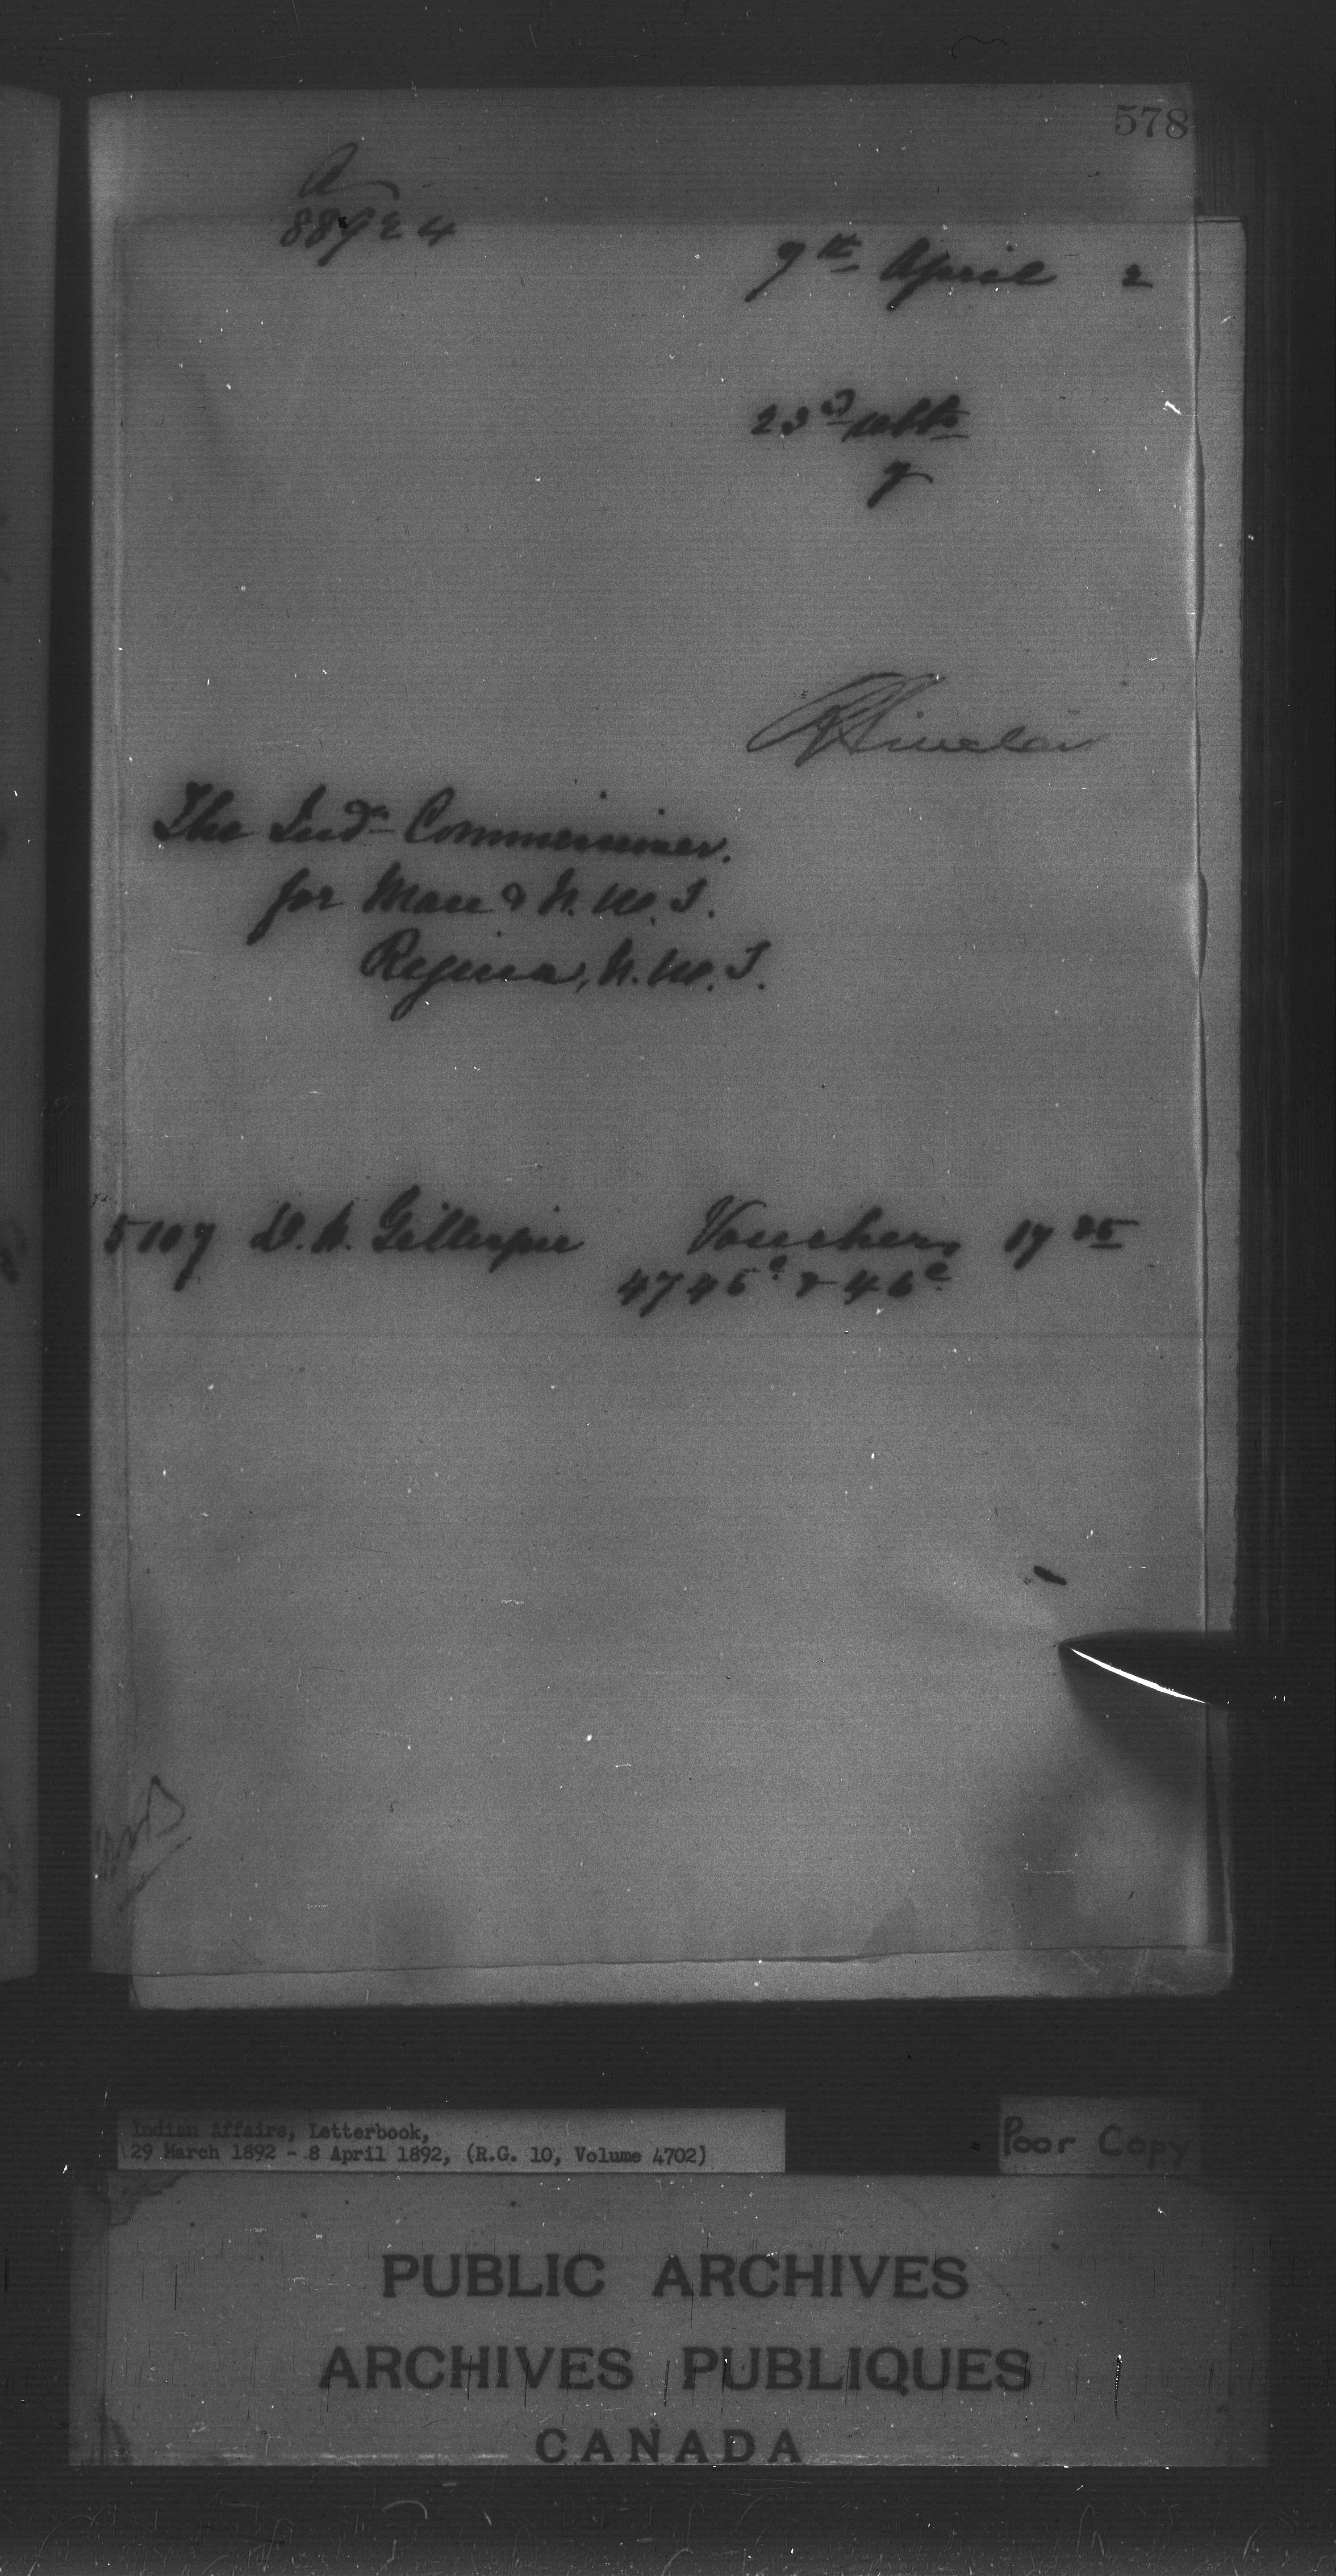 578
A
88924
7th April 2
23d ulto
7
R Sinclair
The Indn Commissioner.
for Man & N. W. T.
Regina, N. W. T.
5107 D. A. Gillespie Vouchers 17 25
4745c & 46c
Indian Affairs, Letterbook,
29 March 1892 - 8 April 1892, (R.G. 10, Volume 4702)
Poor Copy
PUBLIC ARCHIVES
ARCHIVES PUBLIQUES
CANADA